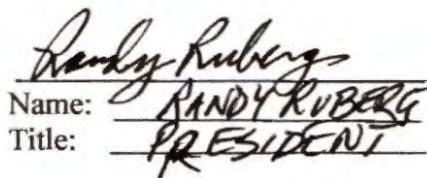 Randy Ruberg
Name: RANDY RUBERG
Title: PRESIDENT